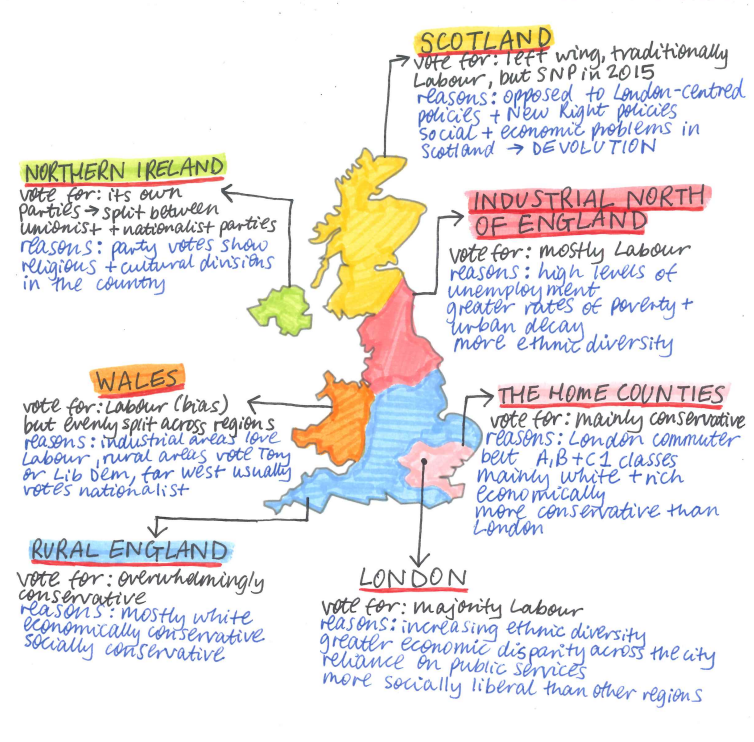 SCOTLAND
vote for: left wing, traditionally
Labour, but SNP in 2015
reasons: opposed to London-centred
policies + New Right policies
social + economic problems in
Scotland → DEVOLUTION
NORTHERN IRELAND
vote for: its own
parties → split between
unionist + nationalist parties
reasons: party votes show
religious + cultural divisions
in the country
INDUSTRIAL NORTH
OF ENGLAND
vote for: mostly Labour
reasons: high levels of
unemployment
greater rates of poverty +
urban decay
more ethnic diversity
WALES
vote for: Labour (bias)
but evenly split across regions
reasons: industrial areas love
Labour, rural areas vote Tory
or Lib Dem, far west usually
votes nationalist
THE HOME COUNTIES
vote for: mainly conservative
reasons: London commuter
belt A,B+C1 classes
mainly white + rich
economically
more conservative than
London
RURAL ENGLAND
vote for: overwhelmingly
conservative
reasons: mostly white
economically conservative
socially conservative
LONDON
vote for: majority Labour
reasons: increasing ethnic diversity
greater economic disparity across the city
reliance on public services
more socially liberal than other regions